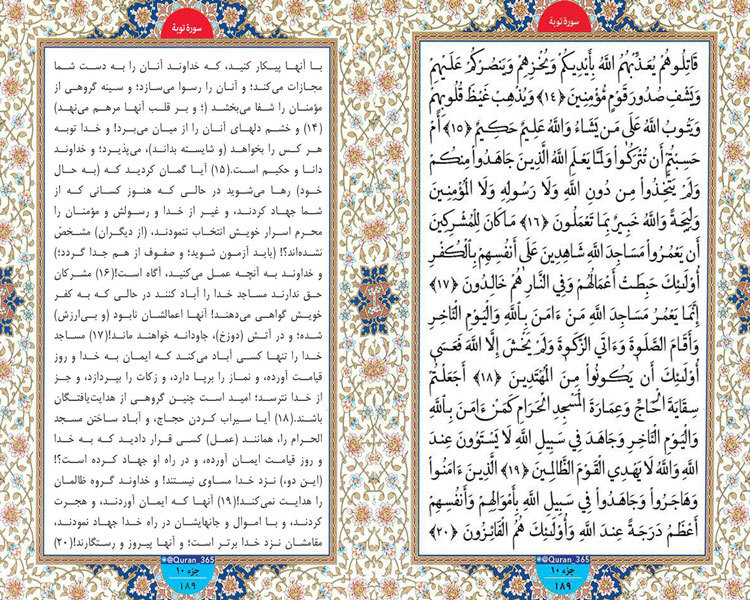 سورهٔ توبهٔ
قَاتِلُوهُمْ يُعَذِّبْهُمُ اللَّهُ بِأَيْدِيكُمْ وَيُخْزِهِمْ وَيَنصُرْكُمْ عَلَيْهِمْ
وَيَشْفِ صُدُورَ قَوْمٍ مُّؤْمِنِينَ ﴿١٤﴾ وَيُذْهِبْ غَيْظَ قُلُوبِهِمْ
وَيَتُوبُ اللَّهُ عَلَى مَن يَشَاءُ وَاللَّهُ عَلِيمٌ حَكِيمٌ ﴿١٥﴾ أَمْ
حَسِبْتُمْ أَن تُتْرَكُوا وَلَمَّا يَعْلَمِ اللَّهُ الَّذِينَ جَاهَدُوا مِنكُمْ
وَلَمْ يَتَّخِذُوا مِن دُونِ اللَّهِ وَلَا رَسُولِهِ وَلَا الْمُؤْمِنِينَ
وَلِيجَةً وَاللَّهُ خَبِيرٌ بِمَا تَعْمَلُونَ ﴿١٦﴾ مَا كَانَ لِلْمُشْرِكِينَ
أَن يَعْمُرُوا مَسَاجِدَ اللَّهِ شَاهِدِينَ عَلَى أَنفُسِهِم بِالْكُفْرِ
أُوْلَئِكَ حَبِطَتْ أَعْمَالُهُمْ وَفِي النَّارِ هُمْ خَالِدُونَ ﴿١٧﴾
إِنَّمَا يَعْمُرُ مَسَاجِدَ اللَّهِ مَنْ ءَامَنَ بِاللَّهِ وَالْيَوْمِ الْآخِرِ
وَأَقَامَ الصَّلَوةَ وَءَاتَى الزَّكَوةَ وَلَمْ يَخْشَ إِلَّا اللَّهَ فَعَسَى
أُوْلَئِكَ أَن يَكُونُوا مِنَ الْمُهْتَدِينَ ﴿١٨﴾ أَجَعَلْتُمْ
سِقَايَةَ الْحَاجِّ وَعِمَارَةَ الْمَسْجِدِ الْحَرَامِ كَمَنْ ءَامَنَ بِاللَّهِ
وَالْيَوْمِ الْآخِرِ وَجَاهَدَ فِي سَبِيلِ اللَّهِ لَا يَسْتَوُونَ عِندَ
اللَّهِ وَاللَّهُ لَا يَهْدِي الْقَوْمَ الظَّالِمِينَ ﴿١٩﴾ الَّذِينَ ءَامَنُوا
وَهَاجَرُوا وَجَاهَدُوا فِي سَبِيلِ اللَّهِ بِأَمْوَالِهِمْ وَأَنفُسِهِمْ
أَعْظَمُ دَرَجَةً عِندَ اللَّهِ وَأُوْلَئِكَ هُمُ الْفَائِزُونَ ﴿٢٠﴾
@Quran_365
جزء ۱۰
۱۸۹
سورهٔ توبهٔ
با آنها پیکار کنید، که خداوند آنان را به دست شما
مجازات می‌کند؛ و آنان را رسوا می‌سازد؛ و سینه گروهی از
مؤمنان را شفا می‌بخشد (؛ و بر قلب آنها مرهم می‌نهد)
(۱۴) و خشم دلهای آنان را از میان می‌برد! و خدا توبه
هر کس را بخواهد (و شایسته بداند)، می‌پذیرد؛ و خداوند
دانا و حکیم است.(۱۵) آیا گمان کردید که (به حال
خود) رها می‌شوید در حالی که هنوز کسانی که از
شما جهاد کردند، و غیر از خدا و رسولش و مؤمنان را
محرم اسرار خویش انتخاب ننمودند، (از دیگران) مشخص
نشده‌اند؟! (باید آزمون شوید؛ و صفوف از هم جدا گردد؛)
و خداوند به آنچه عمل می‌کنید، آگاه است!(۱۶) مشرکان
حق ندارند مساجد خدا را آباد کنند در حالی که به کفر
خویش گواهی می‌دهند! آنها اعمالشان نابود (و بی‌ارزش)
شده؛ و در آتش (دوزخ)، جاودانه خواهند ماند!(۱۷) مساجد
خدا را تنها کسی آباد می‌کند که ایمان به خدا و روز
قیامت آورده، و نماز را برپا دارد، و زکات را بپردازد، و جز
از خدا نترسد؛ امید است چنین گروهی از هدایت‌یافتگان
باشند.(۱۸) آیا سیراب کردن حجاج، و آباد ساختن مسجد
الحرام را، همانند (عمل) کسی قرار دادید که به خدا
و روز قیامت ایمان آورده، و در راه او جهاد کرده است؟!
(این دو،) نزد خدا مساوی نیستند! و خداوند گروه ظالمان
را هدایت نمی‌کند!(۱۹) آنها که ایمان آوردند، و هجرت
کردند، و با اموال و جانهایشان در راه خدا جهاد نمودند،
مقامشان نزد خدا برتر است؛ و آنها پیروز و رستگارند!(۲۰)
@Quran_365
جزء ۱۰
۱۸۹